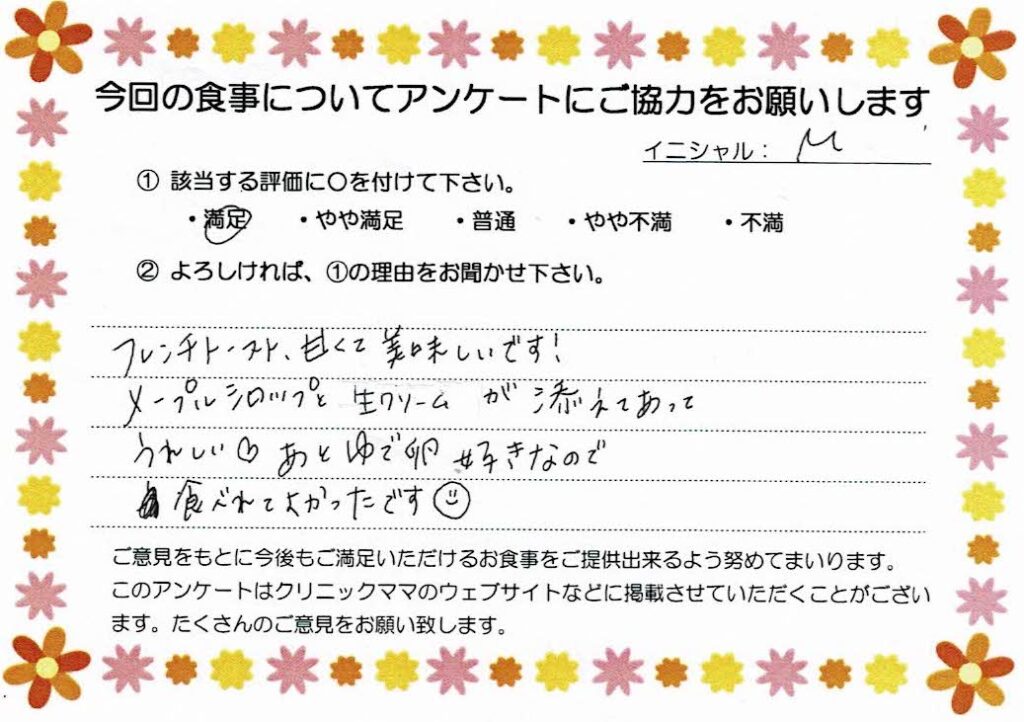 今回の食事についてアンケートにご協力をお願いします
イニシャル： M
① 該当する評価に〇を付けて下さい。
・満足 ・やや満足 ・普通 ・やや不満 ・不満
② よろしければ、①の理由をお聞かせ下さい。
フレンチトースト、甘くて美味しいです！
メープルシロップと生クリームが添えてあって
うれしい♡ あとゆで卵好きなので
食べれてよかったです☺
ご意見をもとに今後もご満足いただけるお食事をご提供出来るよう努めてまいります。
このアンケートはクリニックママのウェブサイトなどに掲載させていただくことがござい
ます。たくさんのご意見をお願い致します。